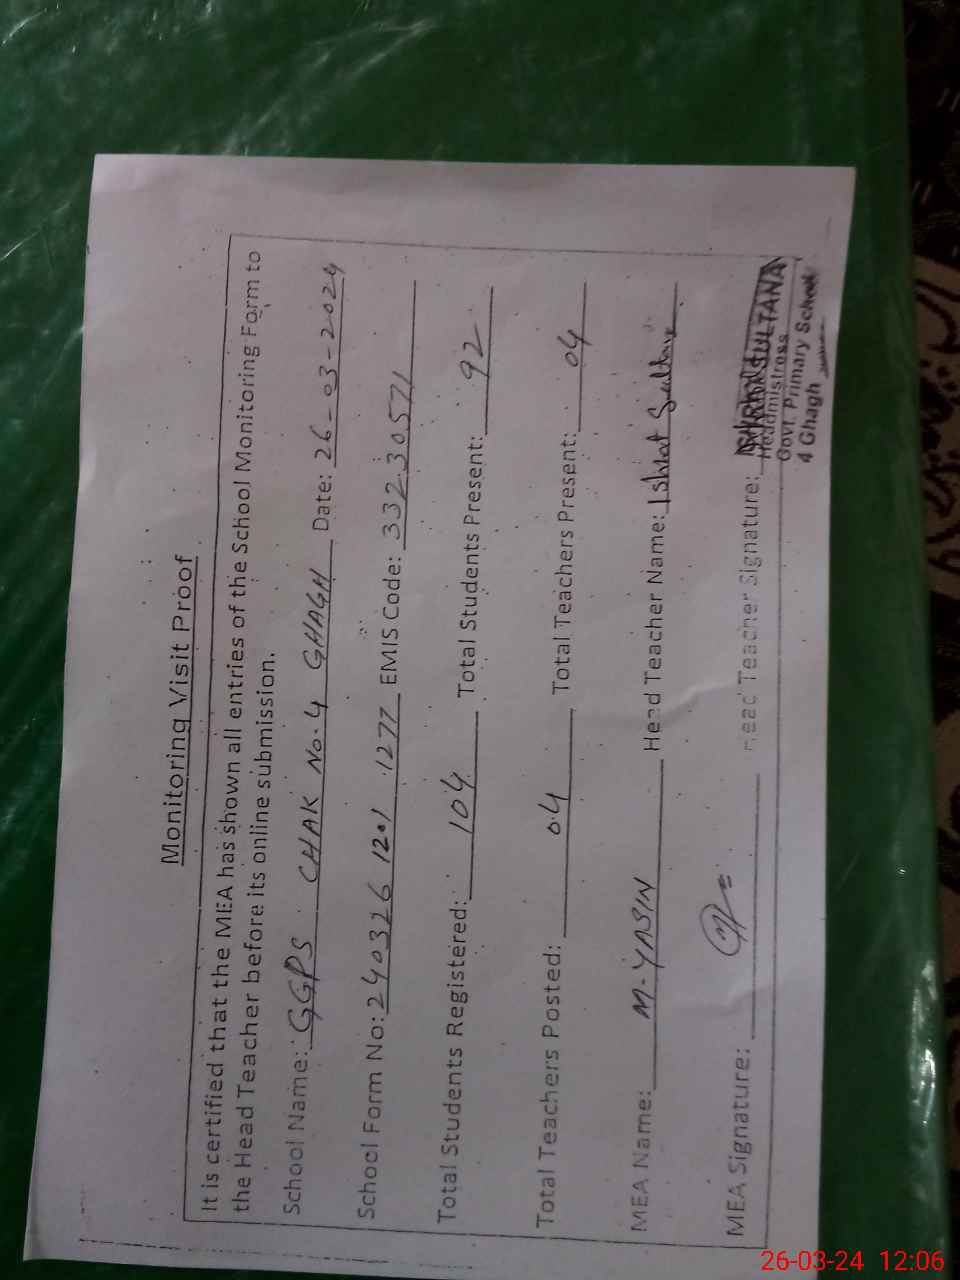 Monitoring Visit Proof
It is certified that the MEA has shown all entries of the School Monitoring Form to
the Head Teacher before its online submission.
School Name: GGPS CHAK No. 4 GHAGH Date: 26-03-2024
School Form No: 240326 1201 1277 EMIS Code: 33230571
Total Students Registered: 104 Total Students Present: 92
Total Teachers Posted: 04 Total Teachers Present: 04
MEA Name: M-YASIN Head Teacher Name: Ishrat Sultana
MEA Signature: Head Teacher Signature:
SULTANA
Headmistress
Govt. Primary School
4 Ghagh
26-03-24 12:06